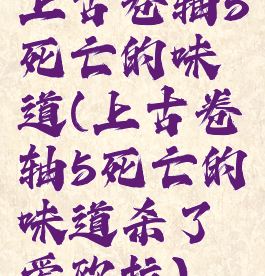 上古卷轴5
死亡的味
道(上古卷
轴5死亡的
味道杀了
爱欧拉)